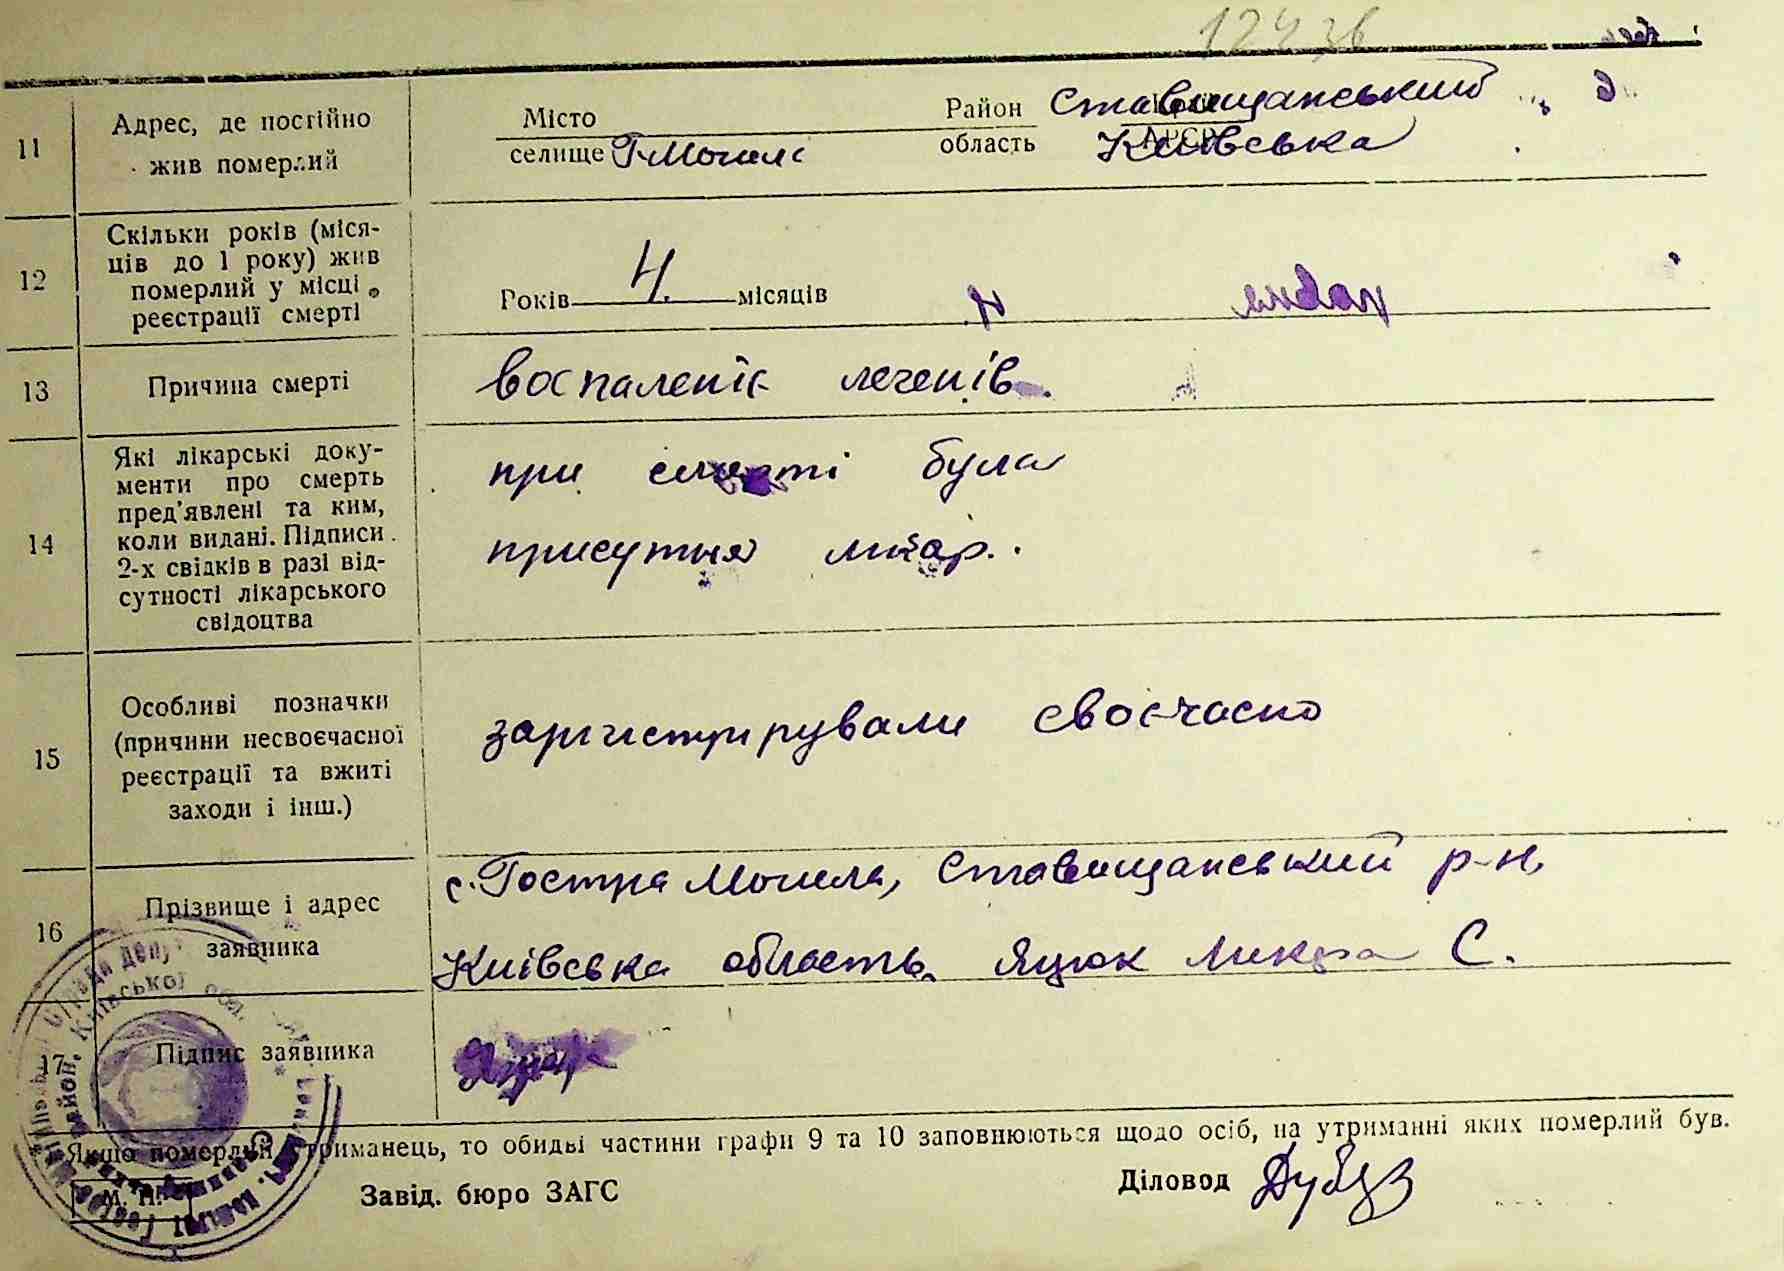 124 зв
11 Адрес, де постійно Місто Район Ставищанський
жив померлий селище Г-Могилі область Київська
12 Скільки років (міся-
ців до 1 року) жив
померлий у місці Років 4. місяців
реєстрації смерті
13 Причина смерті воспаленіє легенів.
14 Які лікарські доку- при смерті була
менти про смерть
пред'явлені та ким,
коли видані. Підписи присутня лікар.
2-х свідків в разі від-
сутності лікарського
свідоцтва
15 Особливі позначки зарегистрірували своєчасно
(причини несвоєчасної
реєстрації та вжиті
заходи і інш.)
16 Прізвище і адрес с. Гостра Могила, Ставищанський р-н,
заявника Київська область. Яцюк Микита С.
17 Підпис заявника
Якщо померлий утриманець, то обидві частини графи 9 та 10 заповнюються щодо осіб, на утриманні яких померлий був.
М. П. Завід. бюро ЗАГС Діловод